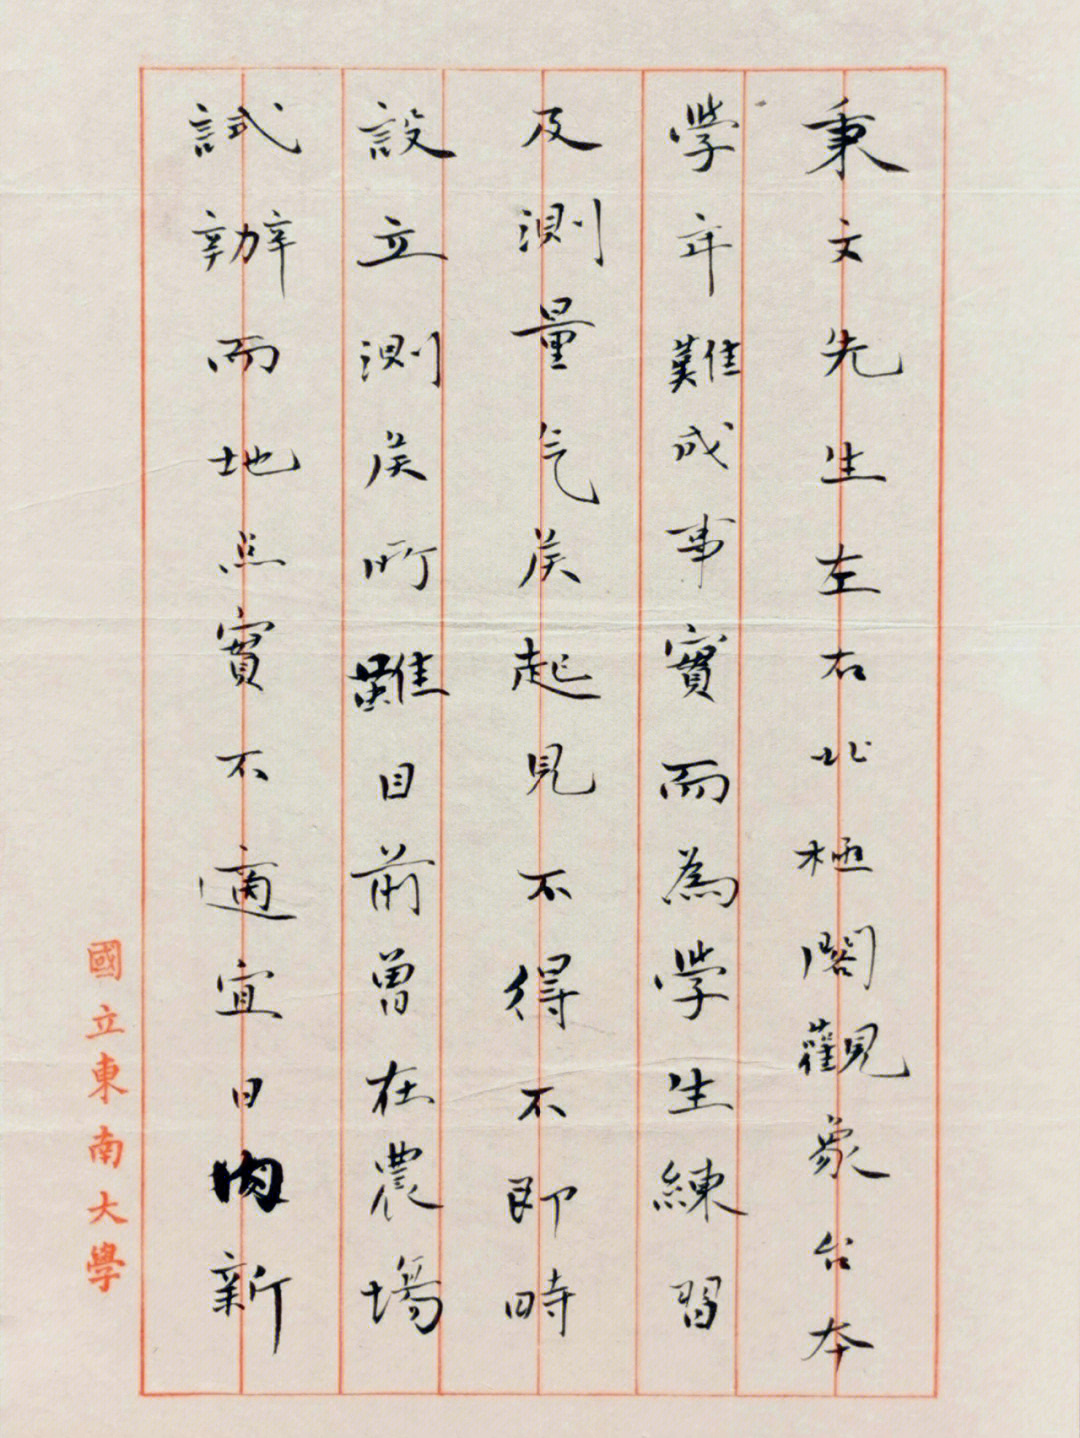 秉文先生左右北極閣觀象台本
學年難成事實而為學生練習
及測量气候起見不得不即時
設立測候所雖目前曾在農場
試辦而地点實不適宜日内新
國立東南大學